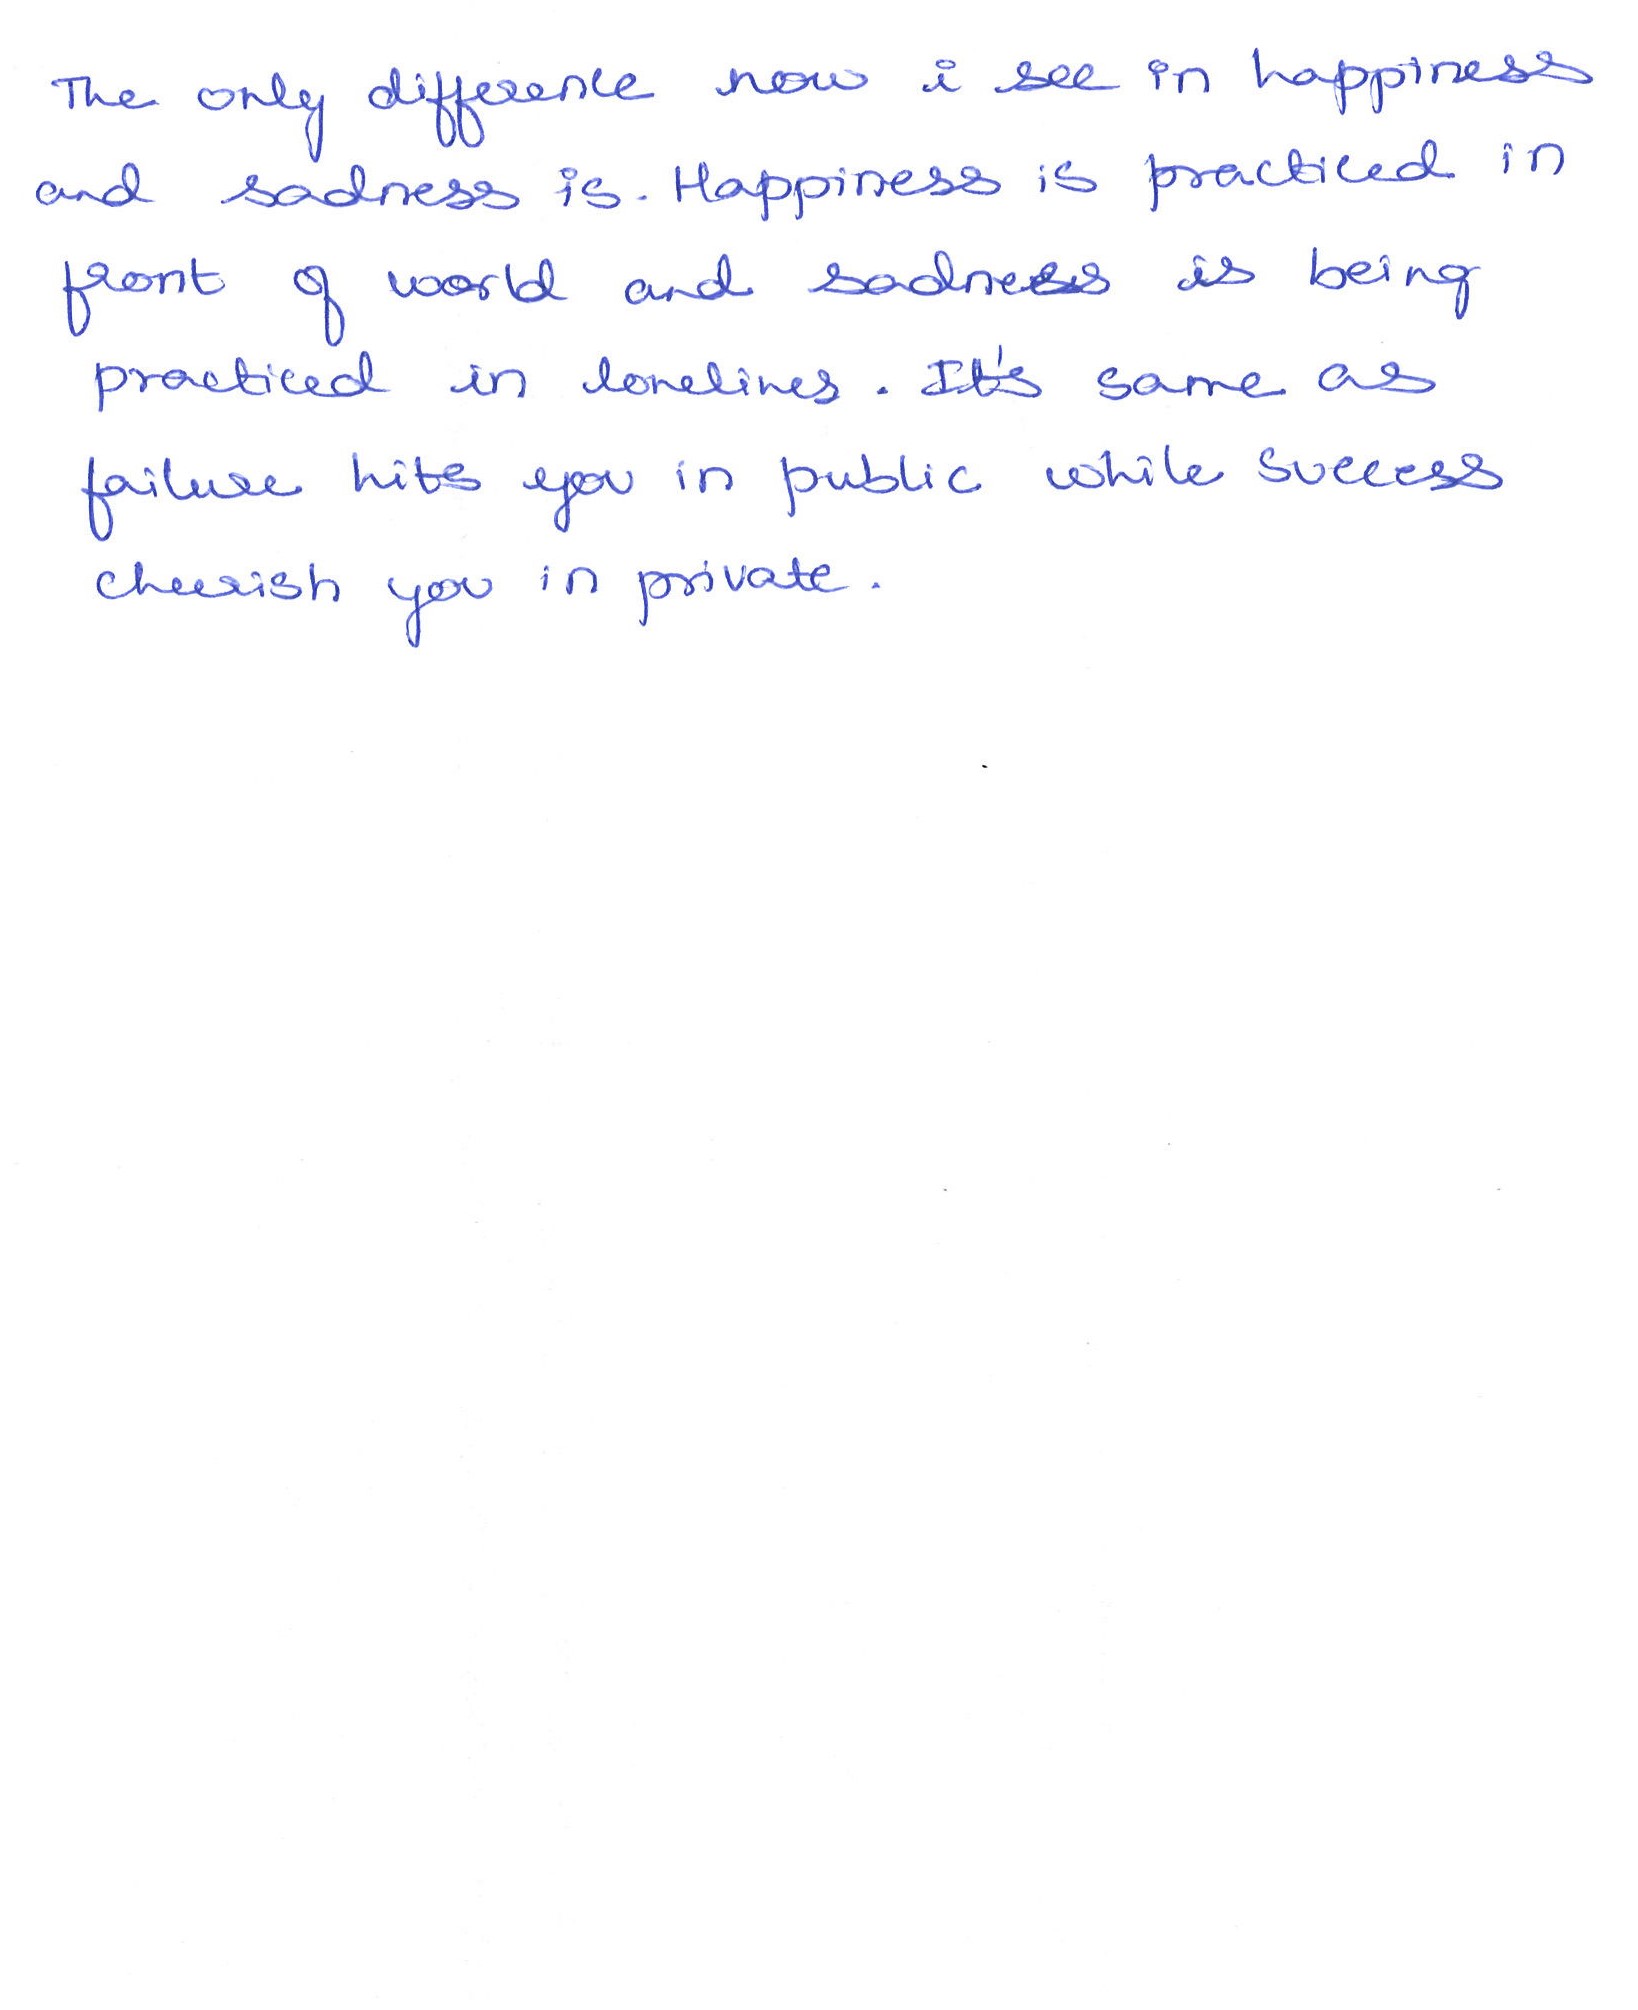 The only difference now i see in happiness
and sadness is. Happiness is practiced in
front of world and sadness is being
practiced in lonelines. It's same as
failure hits you in public while success
cheerish you in private.